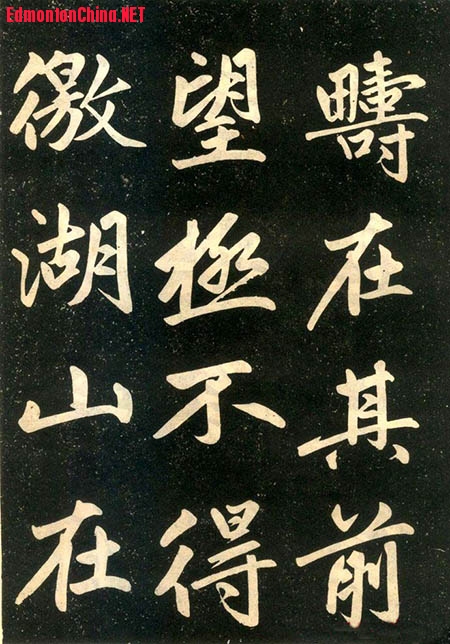 EdmontonChina.NET
疇在其前
望極不得
徼湖山在